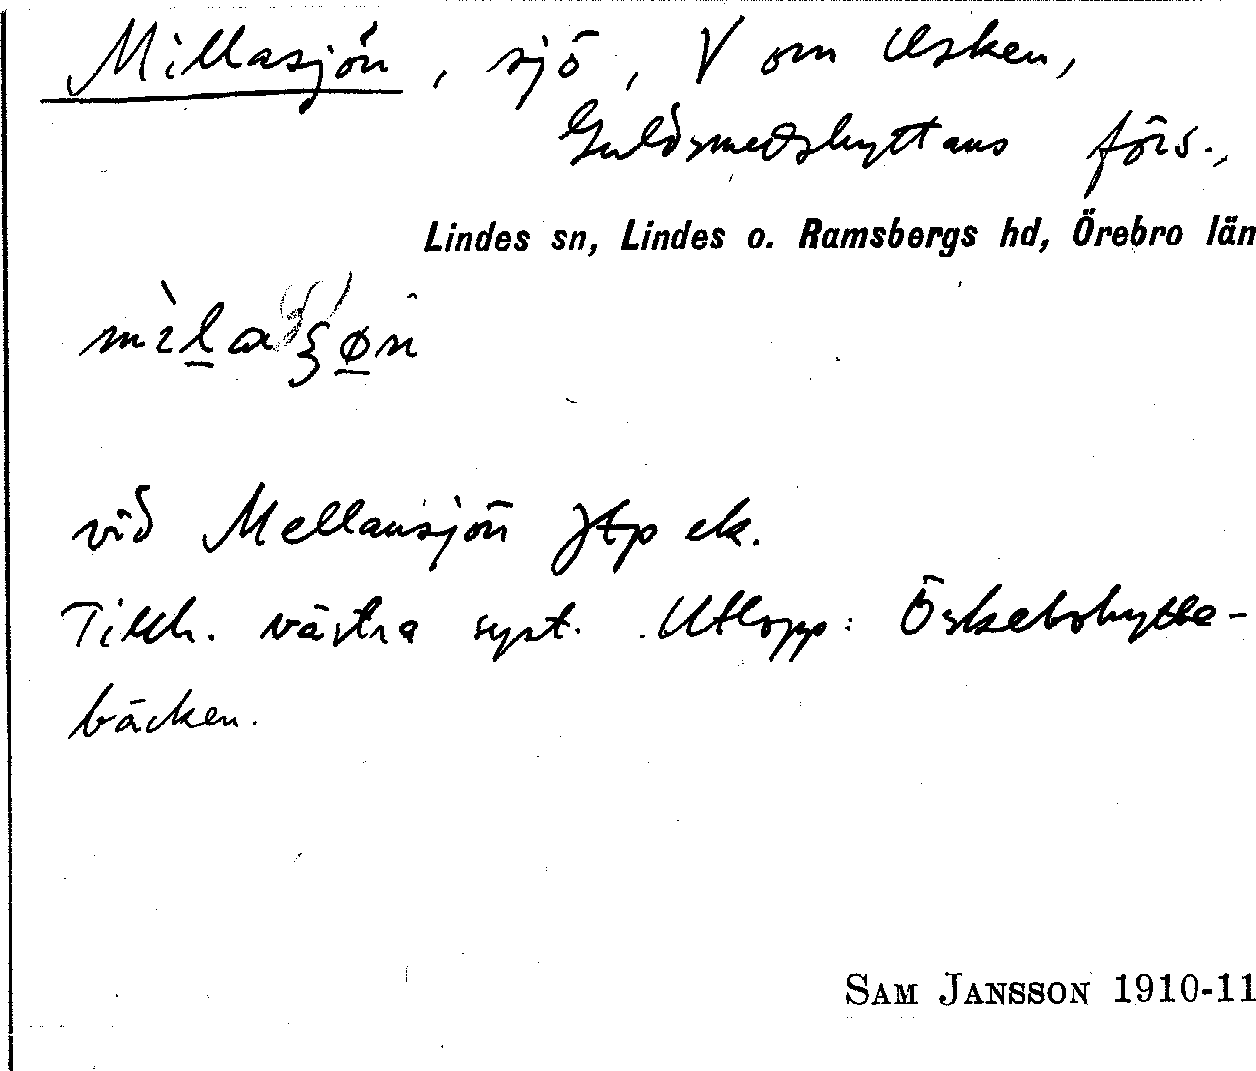 Millasjön, sjö, V om Usken,
Guldsmedshyttans förs.,
Lindes sn, Lindes o. Ramsbergs hd, Örebro län
vid Mellansjön jtp ek.
Tillh. västra syst. Utlopp: Öskebohytte-
bäcken.
SAM JANSSON 1910-11